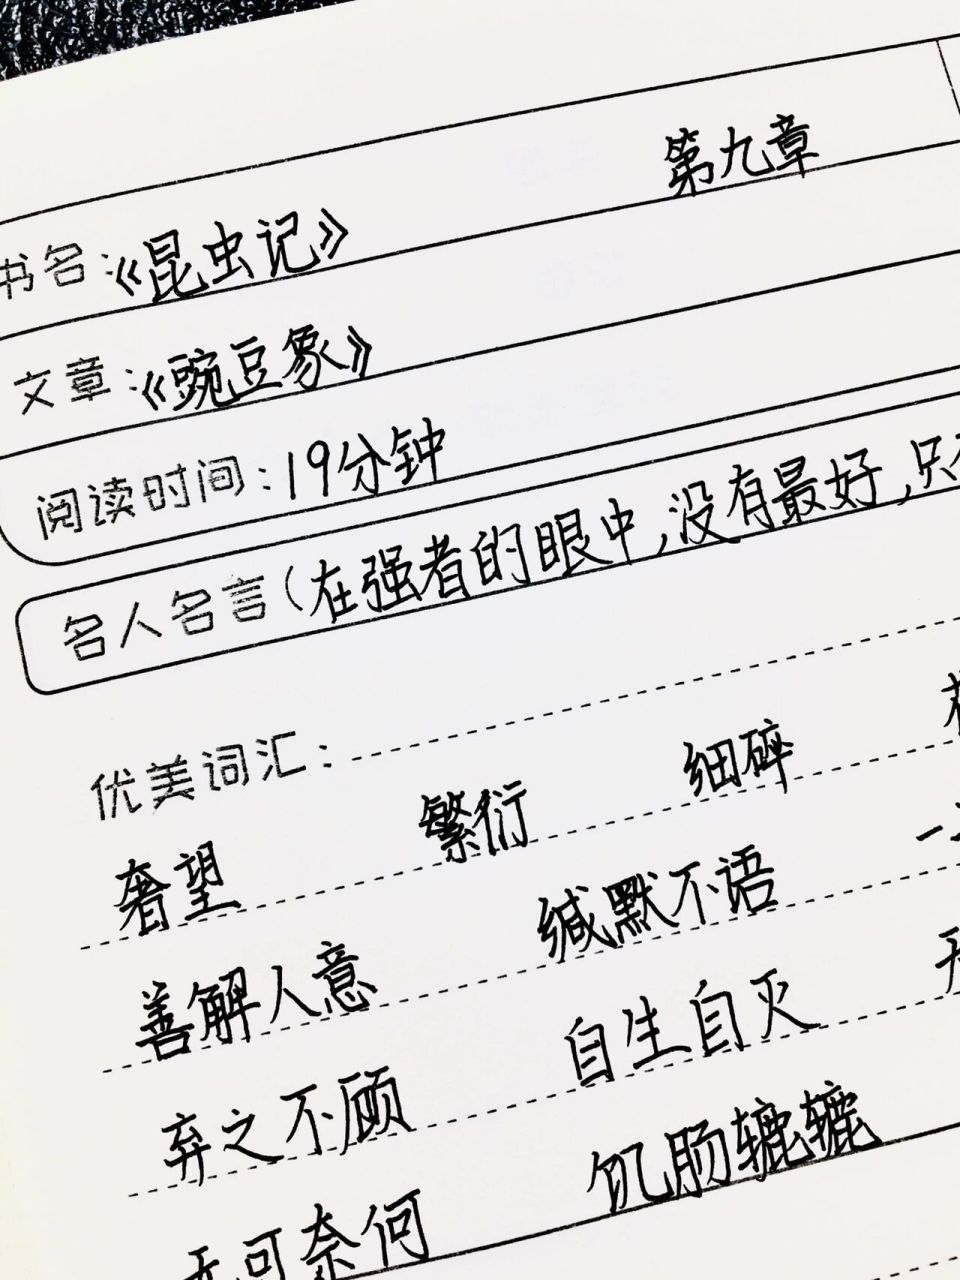 第九章
书名:《昆虫记》
文章:《豌豆象》
阅读时间:19分钟
名人名言(在强者的眼中,没有最好,只
优美词汇:
奢望 繁衍 细碎
善解人意 缄默不语 一
弃之不顾 自生自灭
无可奈何 饥肠辘辘